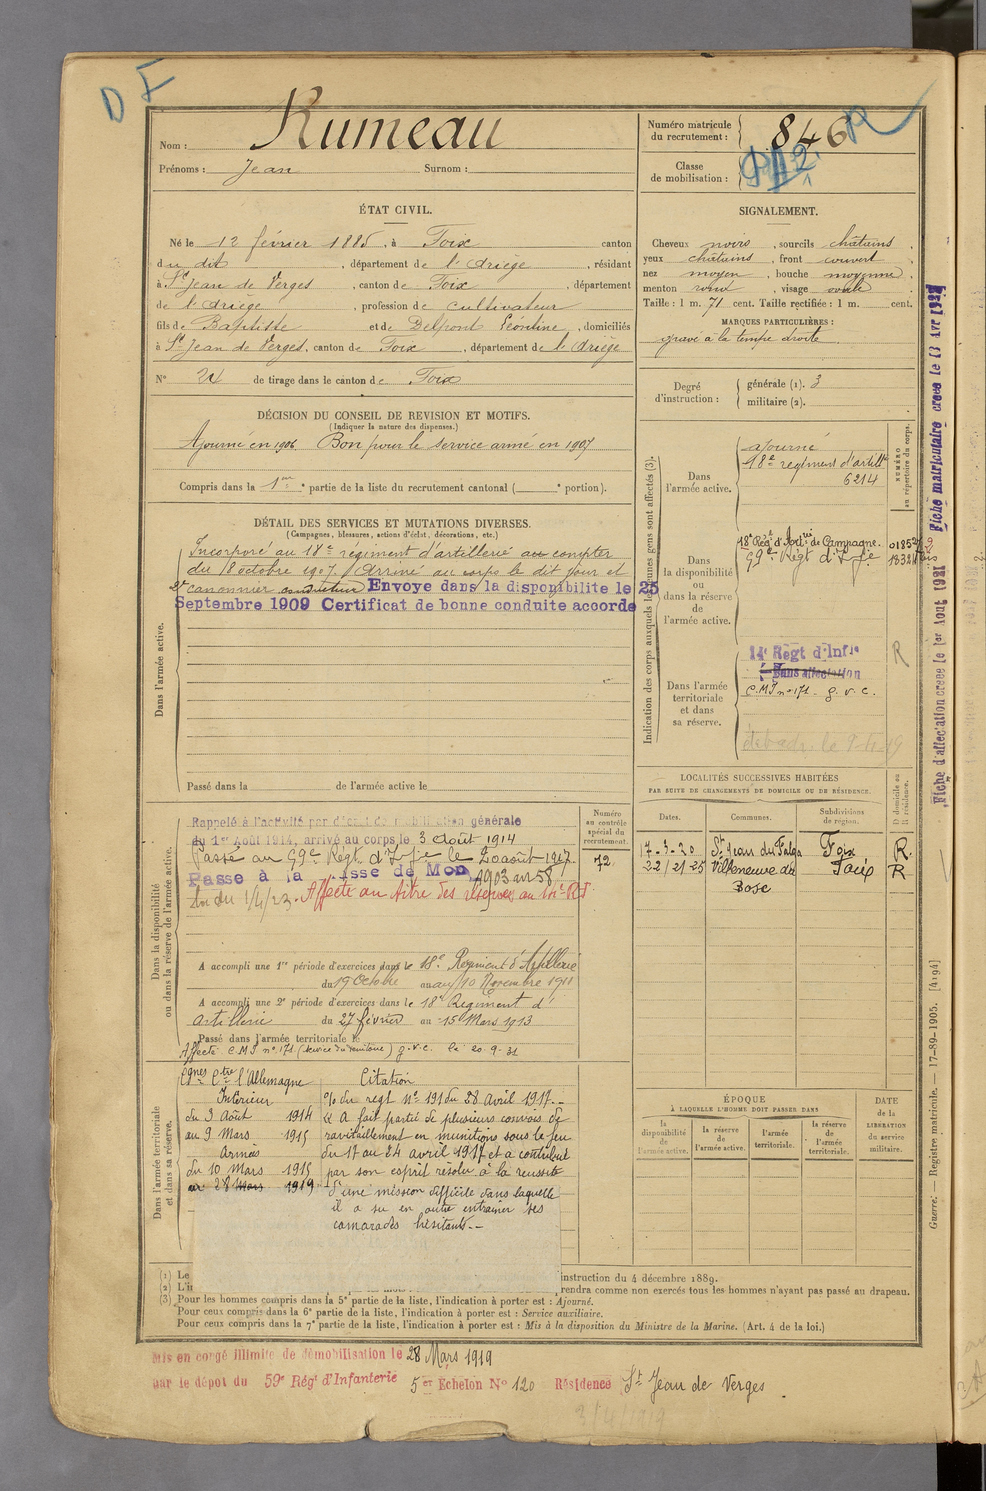 D F
Nom : Rumeau
Prénoms : Jean Surnom :
Numéro matricule du recrutement : 846
R
Classe de mobilisation :
ÉTAT CIVIL.
Né le 12 février 1885, à Foix canton
du dit, département de l'Ariège, résidant
à St Jean de Verges, canton de Foix, département
de l'Ariège, profession de cultivateur
fils de Baptiste et de Delpont Léontine, domiciliés
à St Jean de Verges, canton de Foix, département de l'Ariège
N° 24 de tirage dans le canton de Foix
SIGNALEMENT.
Cheveux noirs, sourcils châtains,
yeux châtains, front couvert
nez moyen, bouche moyenne,
menton rond, visage ovale
Taille : 1 m. 71 cent. Taille rectifiée : 1 m. cent.
MARQUES PARTICULIÈRES :
gravé à la tempe droite
Degré d'instruction : générale (1). 3
militaire (2).
DÉCISION DU CONSEIL DE REVISION ET MOTIFS.
(Indiquer la nature des dispenses.)
Ajourné en 1906 Bon pour le service armé en 1907
Compris dans la 1re partie de la liste du recrutement cantonal ( e portion).
DÉTAIL DES SERVICES ET MUTATIONS DIVERSES.
(Campagnes, blessures, actions d'éclat, décorations, etc.)
Dans l'armée active.
Incorporé au 18e régiment d'artillerie au compter
du 8 octobre 1907. Arrivé au corps le dit jour et
2e canonnier conducteur Envoye dans la disponibilite le 25
Septembre 1909 Certificat de bonne conduite accorde
Passé dans la de l'armée active le
Indication des corps auxquels les jeunes gens sont affectés (3).
NUMÉRO au répertoire du corps.
Dans l'armée active.
ajourné
18e régiment d'artill
6214
Dans la disponibilité ou dans la réserve de l'armée active.
18e Rég. d'Artrie de Campagne.
59e Régt d'Infie
Dans l'armée territoriale et dans sa réserve.
14e Régt d'Infie
Sans affectation
C.M.I n° 171 - g.v.c.
R
Fiche matriculaire creee le 13 Avr 1922
Fiche d'affectation creee le 1er Aout 1921
LOCALITÉS SUCCESSIVES HABITÉES
PAR SUITE DE CHANGEMENTS DE DOMICILE OU DE RÉSIDENCE.
Dates. Communes. Subdivisions de région. D domicile ou R résidence.
17-3-20 St Jean du Falga Foix R.
22/21 25 Villeneuve du Bosc Foix R.
Dans la disponibilité ou dans la réserve de l'armée active.
Numéro au contrôle spécial du recrutement.
72
Rappelé à l'activité par décret de mobilisation générale
du 1er Août 1914, arrivé au corps le 3 Août 1914
Passé au 59e Régt d'Infie le 20 août 1917.
Passe à la Classe de Mon 1903 art 58
Loi du 1/4/23. Affecté au titre des réserves au
A accompli une 1re période d'exercices dans le 18e Régiment d'Artillerie
du 19 Octobre au 10 Novembre 1911
A accompli une 2e période d'exercices dans le 18e Régiment d'
artillerie du 27 février au 15 Mars 1913
Passé dans l'armée territoriale le
Affecté C.M.I n° 171 (service du territoire) g.v.c. le 20.9.31
Dans l'armée territoriale et dans sa réserve.
Cgnes Ctre l'Allemagne
Intérieur
du 3 Août 1914
au 9 Mars 1915
Armées
du 10 Mars 1915
au 28 Mars 1919
Citation
% du regt n° 191 du 28 avril 1917.-
« A fait partie de plusieurs convois de
ravitaillement en munitions sous le feu
du 17 au 24 avril 1917 et a contribué
par son esprit résolu à la réussite
d'une mission difficile dans laquelle
il a su en outre entrainer ses
camarades hésitants.-
ÉPOQUE
À LAQUELLE L'HOMME DOIT PASSER DANS
la disponibilité de l'armée active.
la réserve de l'armée active.
l'armée territoriale.
la réserve de l'armée territoriale.
DATE de la LIBÉRATION du service militaire.
(1) Le instruction du 4 décembre 1889.
(2) L'i prendra comme non exercés tous les hommes n'ayant pas passé au drapeau.
(3) Pour les hommes compris dans la 5e partie de la liste, l'indication à porter est : Ajourné.
Pour ceux compris dans la 6e partie de la liste, l'indication à porter est : Service auxiliaire.
Pour ceux compris dans la 7e partie de la liste, l'indication à porter est : Mis à la disposition du Ministre de la Marine. (Art. 4 de la loi.)
Guerre. — Registre matricule. — 17-89-1905. [4194]
Mis en congé illimité de démobilisation le 28 Mars 1919
par le dépot du 59e Régt d'Infanterie 5er Echelon N° 120 Résidence St Jean de Verges.
3/4/1919